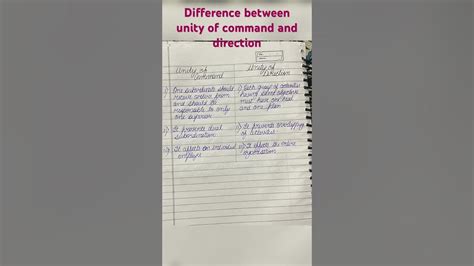 Difference between
unity of command and
direction
Unity of Command
Unity of Direction
i) One subordinate should
receive orders from
and should be
responsible to only
one superior
i) Each group of activities
having same objectives
must have one head
and one plan
ii) It prevents dual
subordination
ii) It prevents overlapping
of activities
iii) It affects an individual
employee
iii) It affects the entire
organisation